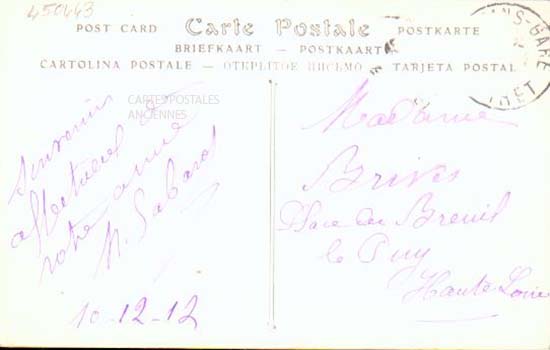 450663
POST CARD Carte Postale POSTKARTE
BRIEFKAART — POSTKAART
CARTOLINA POSTALE — ОТКРЫТОЕ ПИСЬМО — TARJETA POSTAL
CARTES POSTALES
ANCIENNES
Souvenir
affectueux de
votre amie
M. Sabarot
10-12-12
Madame
Brives
Place du Breuil
le Puy
Haute-Loire